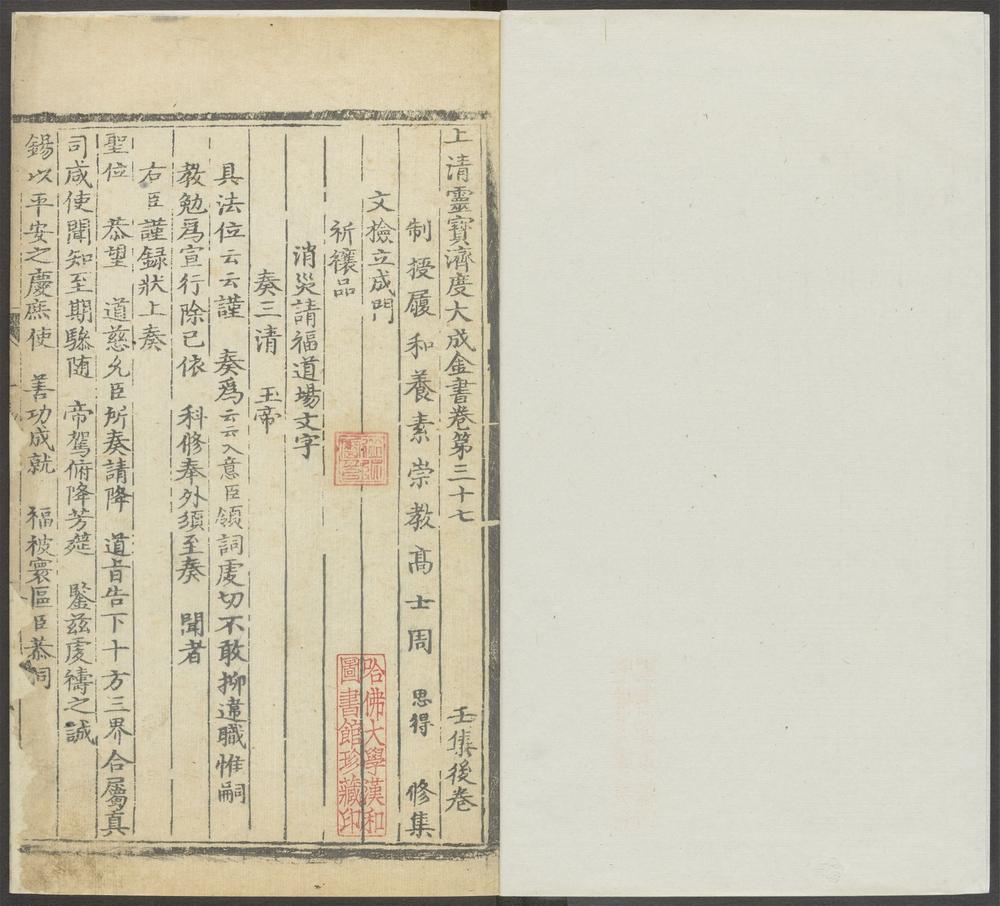 上清靈寶濟度大成金書卷第三十七 壬集後卷
制授履和養素崇教高士周 思得 修集
文檢立成門
祈禳品
消災請福道場文字
奏三清 玉帝
具法位云云謹 奏爲云云入意臣領詞虔切不敢抑違職惟嗣
教勉爲宣行除已依 科修奉外須至奏 聞者
右臣謹録狀上奏
聖位 恭望 道慈允臣所奏請降 道旨告下十方三界合屬真
司咸使聞知至期驂随 帝駕俯降芳筵 鑒兹虔禱之誠
錫以平安之慶庶使 善功成就 福被寰區臣恭詞
哈佛大學漢和
圖書館珍藏印